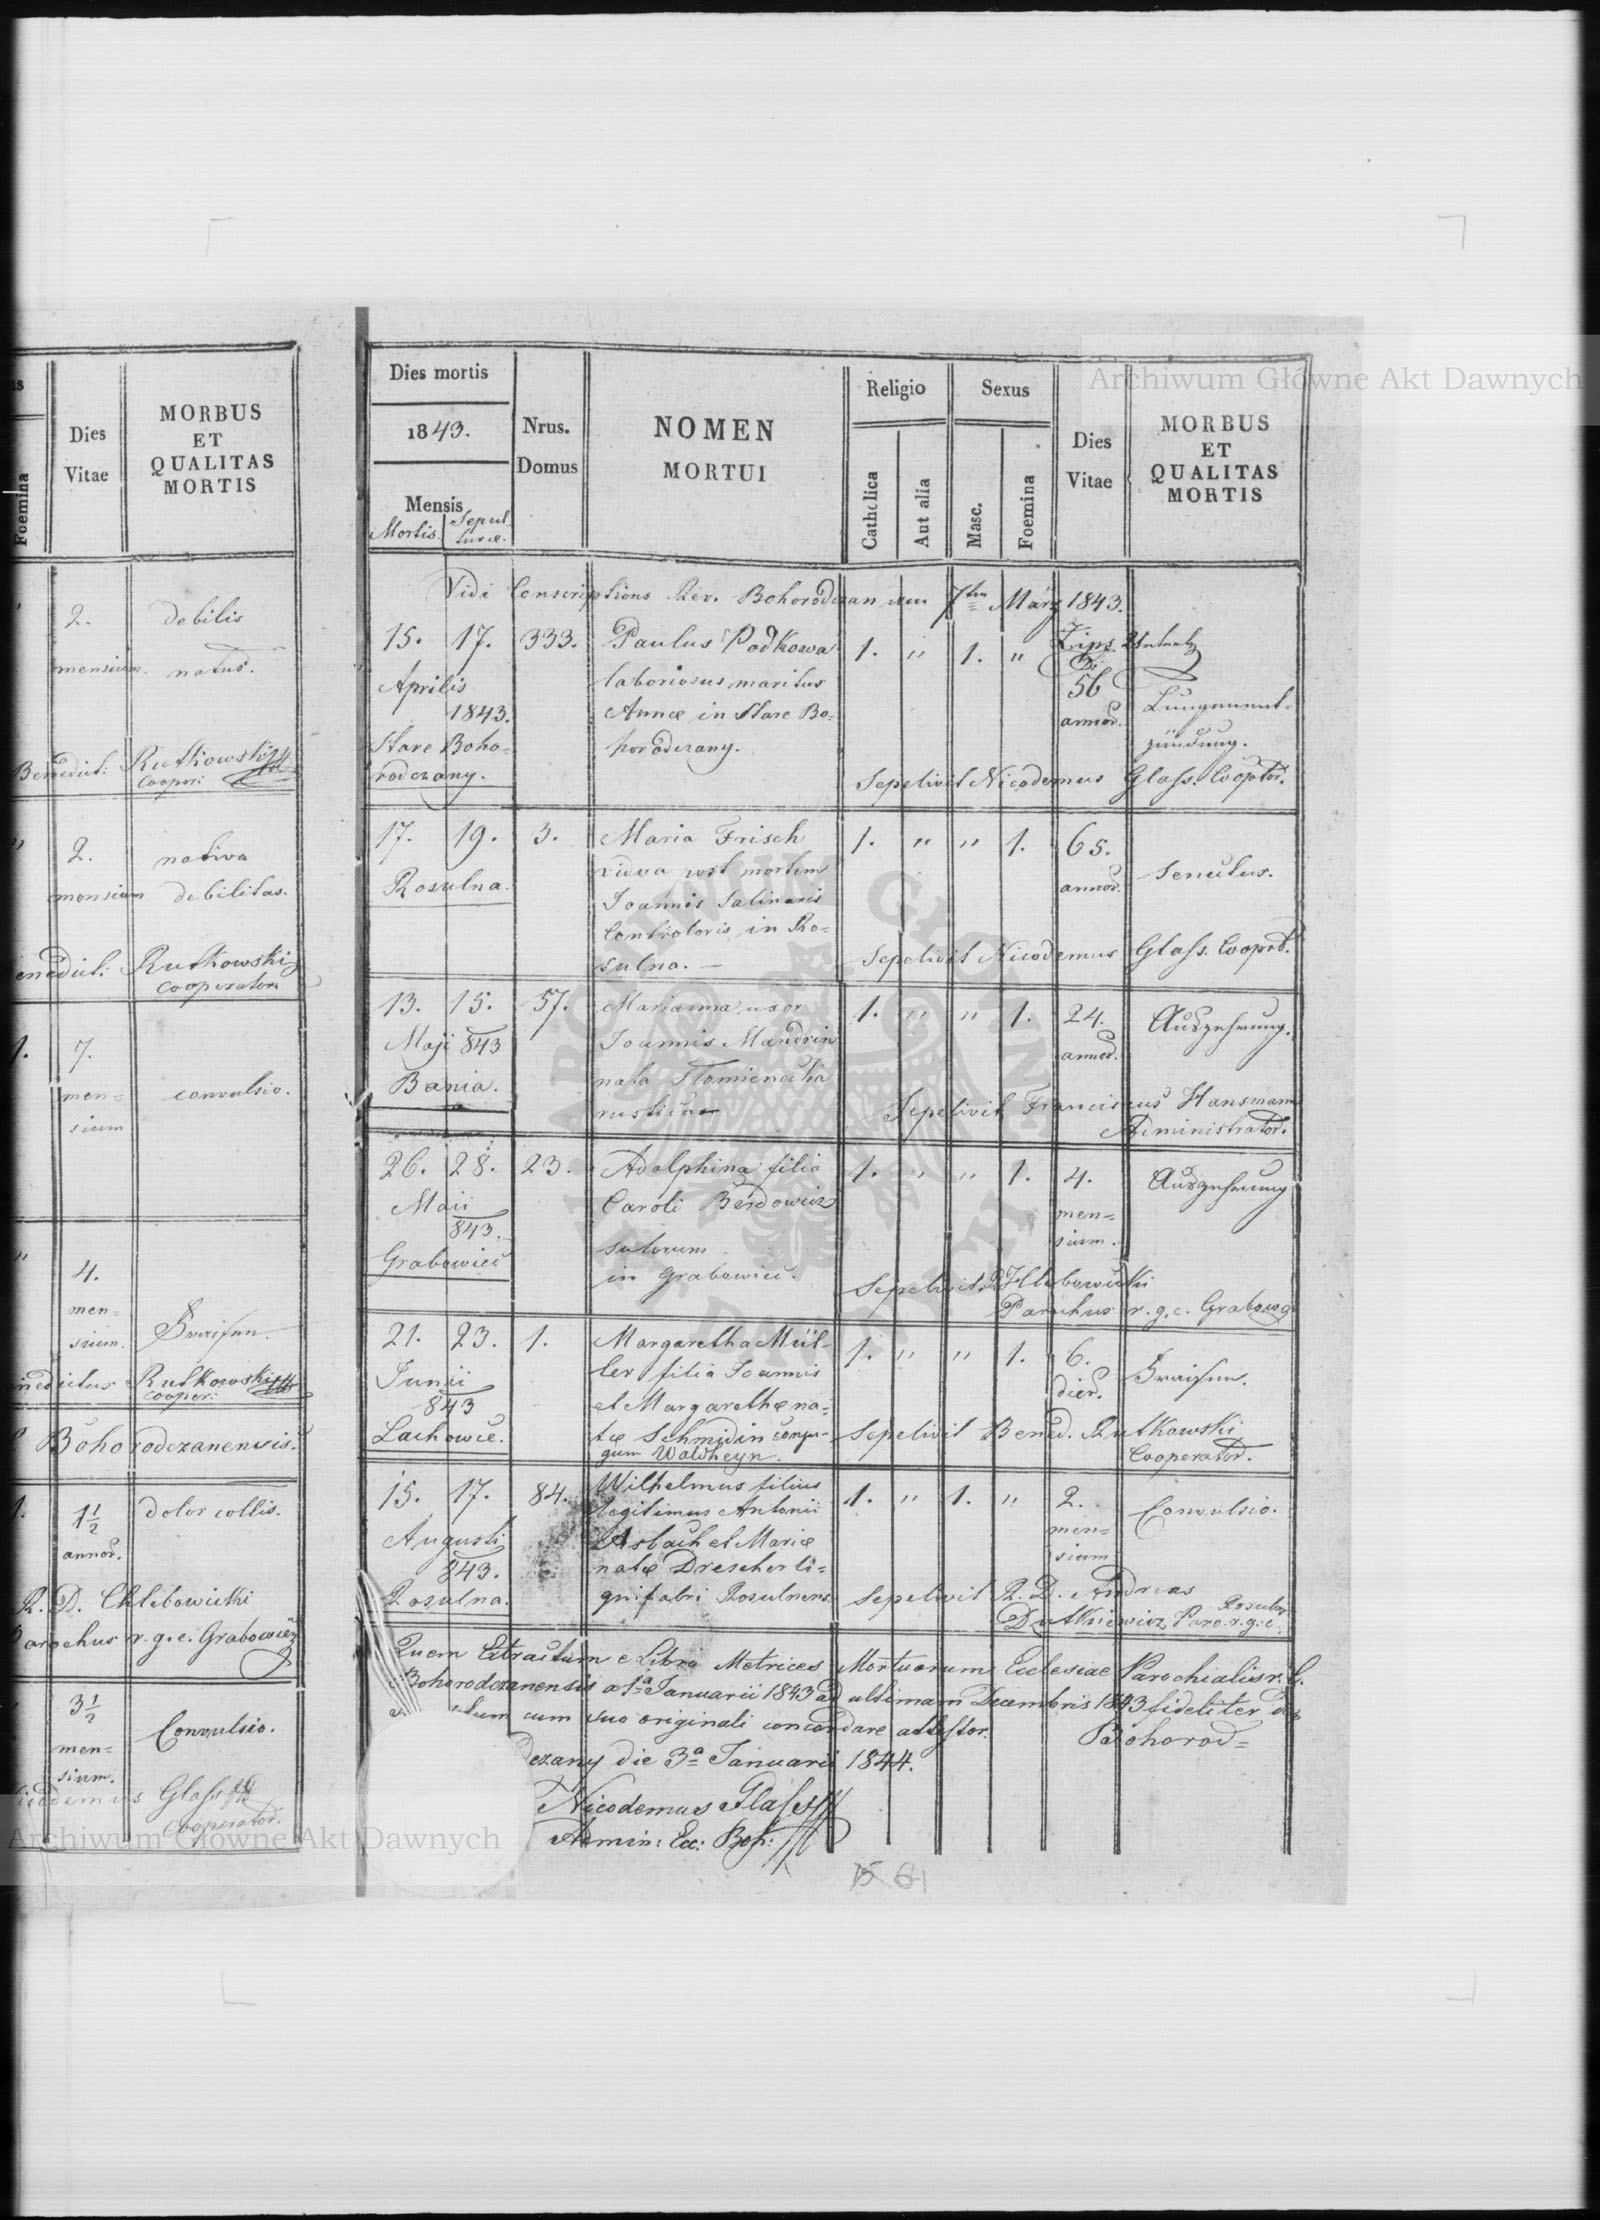 Archiwum Główne Akt Dawnych
Foemina
Dies
Vitae
MORBUS
ET
QUALITAS
MORTIS
2.
mensium.
debilis
natus.
Benedict: Rutkowski
Cooper:
2.
mensium
nativa
debilitas.
Rutkowski
Cooperator
1. 7.
men=
sium
convulsio.
4.
men=
sium.
Rutkowski
Cooper:
Bohorodczanensis.
1. 1½
annor.
dolor collis.
R. D. Chlebowicki
Parochus r. g. c. Grabowiec
3½
men=
sium.
Convulsio.
Glass
Cooperator.
Dies mortis
1843.
Mensis
Mortis Sepul
turae.
Nrus.
Domus
NOMEN
MORTUI
Religio
Catholica
Aut alia
Sexus
Masc.
Foemina
Dies
Vitae
MORBUS
ET
QUALITAS
MORTIS
Vidi Conscriptions Rev. Bohorodczan 7ten März 1843.
15. 17. 333. Paulus Podkowa 1. " 1. "
Aprilis laboriosus maritus 56
1843. Annae in Stare Bo= annor. Lungenent=
Stare Boho= horodczany. zündung.
rodczany. Sepelivit Nicodemus Glass. Cooptor.
17. 19. 3. Maria Frisch 1. " " 1. 65.
Rosulna. vidua post mortem annor. Senectus.
Joannis Salinaris
Controloris in Ro=
sulna. — Sepelivit Nicodemus Glass. Cooprt.
13. 15. 57. Marianna uxor 1. " " 1. 24. Auszehrung.
Maji 843 Joannis Mandrin annor.
Bania. nata
rustica Sepelivit Franciscus Hansmann
Administrator.
26. 28. 23. Adolphina filia 1. " " 1. 4. Auszehrung
Maii Caroli Berdowicz men=
843. sutorum sium.
Grabowiec in Grabowiec. Sepelivit Hlebowicki
Parochus r. g. c. Grabow
21. 23. 1. Margaretha Mül= 1. " " 1. 6.
Junii ler filia Joannis dier.
843 et Margarethae na=
Lachowce. tae Schmidin conju= Sepelivit Bened. Rutkowski
gum Waldheyn. Cooperator.
15. 17. 84. Wilhelmus filius 1. " 1. " 2. Convulsio.
Augusti legitimus Antonii men=
843. Asbach et Mariae sium
Rosulna. natae Drescher li=
gnifabri Rosulnens. Sepelivit R. D. Andreas
Dutkiewicz Paro. r. g. c.
Quem Extractum e Libro Metrices Mortuorum Ecclesiae Parochialis r. l.
Bohorodczanensis a 1a Januarii 1843 ad ultimam Decembris 1843 fideliter
cum suo originali concordare attestor. Bohorod=
czany die 3a Januarii 1844.
Nicodemus Glass
Admin: Ecc: Boh:
Archiwum Główne Akt Dawnych